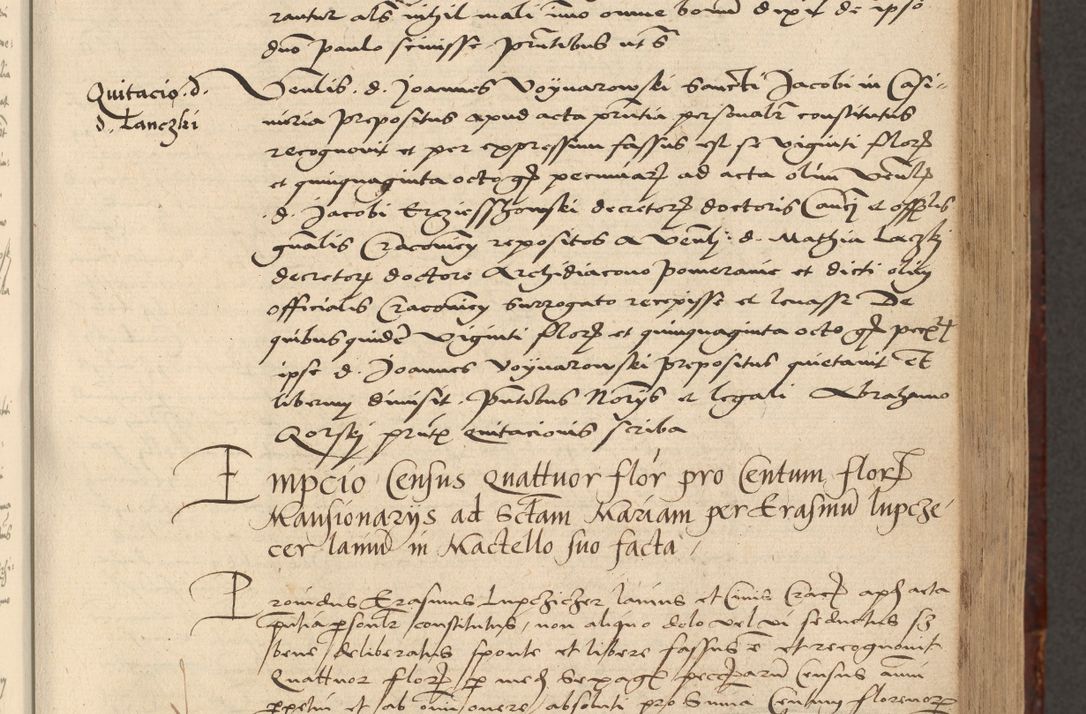 rantur als nihil mali imo omne bonum dixit de ipso
dno Paulo scivisse Pntibus ut s
Quitacio . d .
d . Lanczki
Venlis . d . Joannes Voynarowski Sancti Jacobi in Casi-
miria Prepositus apud acta pntia personalr constitutus
recognovit et per expressum fassus est se viginti flor
et quinquaginta octo gr pecuniar ad acta olim Venlis
d . Jacobi Erziesszowski decretor doctoris Canci et offlis
gnalis Cracovien repositos a Venli . d . Mathia Laczki
decretor doctore Archidiacono Pomeranie et dicti olim
officialis Cracovien surrogato recepisse et levasse De
quibusquidem viginti flor et quinquaginta octo gr
ipse d . Joannes Voynarowski Prepositus quietavit et
liberum dimisit . Pntibus Norys et legali Abrahamo
Gorskj pntis quitacionis scriba
Empcio Census quattuor flor pro Centum flor
Mansionarijs ad Sctam Mariam per Erasmu lupcze
cer laniu in Mactello suo facta
Providus Erasmus Lupcziczer lanius et Civis Crac apud acta
pntia psonalr constitutus, non aliquo dolo vel vi seductus sz
bene deliberatus sponte et libere fassus e et recognovit
Quattuor flor p med sexage census annui
ppetui et ab omni onere absoluti pro Summa Centum florenor